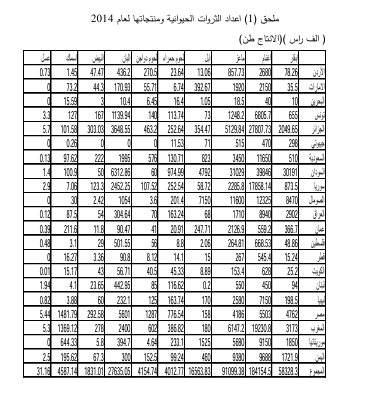 ملحق (1) اعداد الثروات الحيوانية ومنتجاتها لعام 2014
( الف راس )(الانتاج طن)
ابقار اغنام ماعز ابل لحوم حمراء لحوم دواجن البان البيض اسماك عسل
الاردن 78.26 2680 857.73 13.06 23.64 270.5 436.2 47.47 1.45 0.73
الامارات 35.5 2150 1920 392.67 6.74 55.71 170.93 44.3 73.2 0
البحرين 10 40 18.5 1.05 16.4 6.45 10.4 3 15.59 0
تونس 655 6805.7 1248.2 113.74 140 1139.94 167 127 3.3
الجزائر 2049.65 27807.73 5129.84 354.47 252.64 463.2 3648.55 303.03 101.58 5.7
جيبوتي 298 470 515 71 11.53 0 0 0.26 0
السعودية 510 11650 3450 823 130.71 576 1985 222 97.62 0.13
السودان 30191 39846 31029 4792 974.99 60 6312.86 50 100.9 1.4
سوريا 873.5 17858.14 2285.8 58.72 252.54 107.52 2452.25 123.3 7.06 2.9
الصومال 8470 12325 11600 7150 201.4 3.6 1054 2.42 30 0
العراق 2902 8940 1710 68 163.24 70 304.64 54 87.5 0.12
عمان 366.7 559.2 2126.9 247.71 20.91 41 90.47 11.8 211.6 0.39
فلسطين 48.86 668.53 264.81 2.06 8.8 56 501.55 29 3.1 0.48
قطر 15.24 545.4 267 15 14.1 8.12 90.8 3.36 16.27 0
الكويت 25.2 628 153.4 8.89 45.33 40.5 56.71 43 15.17 0.01
لبنان 94 450 550 0.2 116.62 85 442.95 23.65 4.1 1.94
ليبيا 198.5 7150 2580 170 163.74 125 232.1 60 3.88 0.82
مصر 4762 5503 4186 158 776.54 1287 5601 292.58 1481.79 5.44
المغرب 3173 19230.8 6147.2 180 386.82 602 2400 278 1369.12 5.3
موريتانيا 1850 9150 5680 1525 233.1 4.64 394.7 5.8 644.33 0
اليمن 1721.9 9688 9380 460 99.24 152.5 300 67.3 195.62 2.5
المجموع 58328.3 184154.5 91099.38 16563.83 4012.77 4154.74 27635.05 1831.01 4587.14 31.16